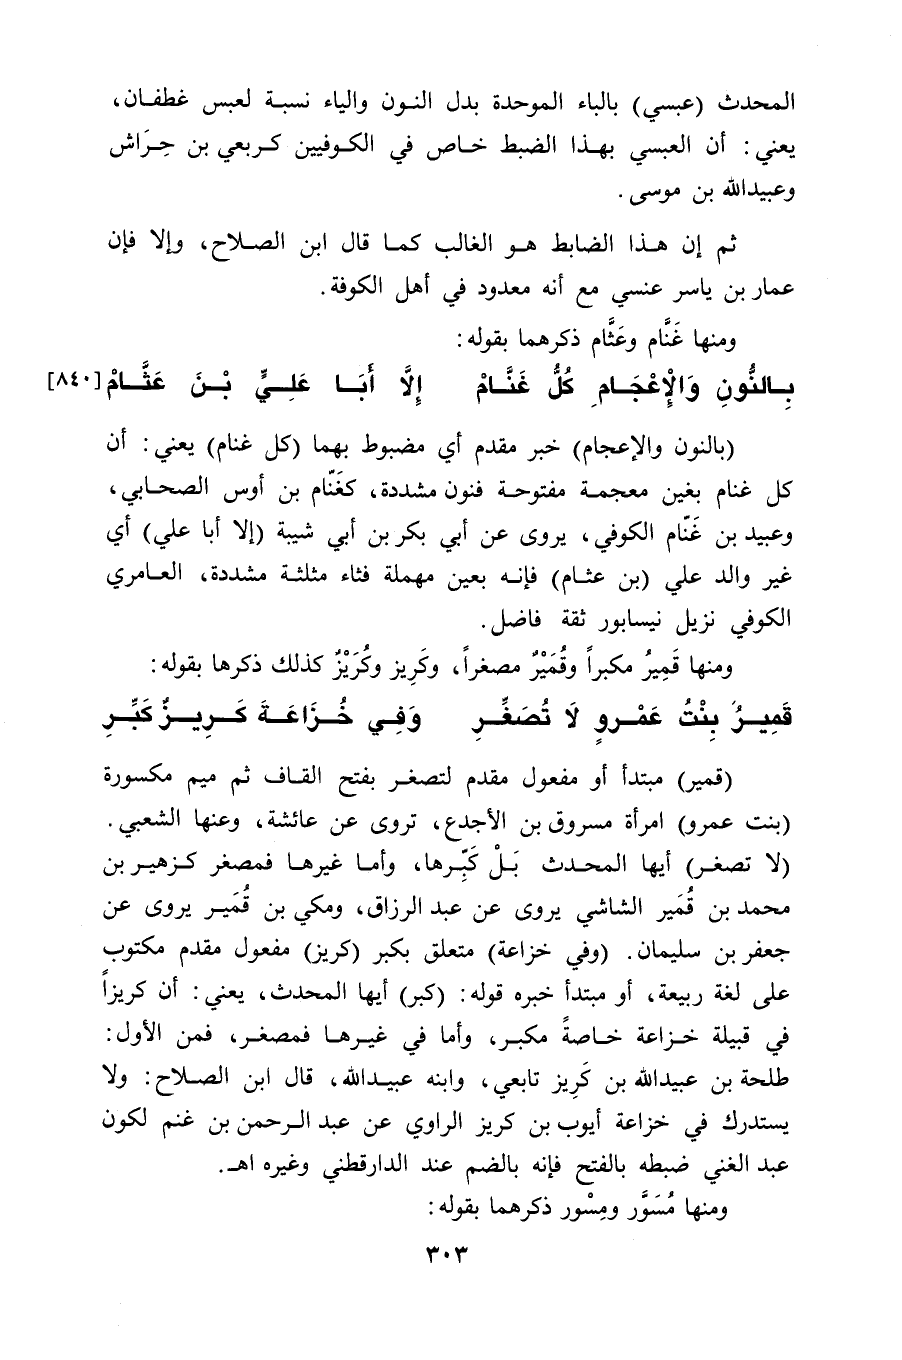 المحدث (عبسي) بالباء الموحدة بدل النون والياء نسبة لعبس غطفان،
يعني: أن العبسي بهذا الضبط خاص في الكوفيين كربعي بن حِرَاش
وعبيدالله بن موسى.
ثم إن هذا الضابط هو الغالب كما قال ابن الصلاح، وإلا فإن
عمار بن ياسر عنسي مع أنه معدود في أهل الكوفة.
ومنها غَنَّام وعَثَّام ذكرهما بقوله:
بِالنُّونِ وَالْإِعْجَامِ كُلُّ غَنَّامْ إِلَّا أَبَا عَلِيٍّ بْنَ عَثَّامْ [٨٤٠]
(بالنون والإعجام) خبر مقدم أي مضبوط بهما (كل غنام) يعني: أن
كل غنام بغين معجمة مفتوحة فنون مشددة، كغَنّام بن أوس الصحابي،
وعبيد بن غَنّام الكوفي، يروى عن أبي بكر بن أبي شيبة (إلا أبا علي) أي
غير والد علي (بن عثام) فإنه بعين مهملة فثاء مثلثة مشددة، العامري
الكوفي نزيل نيسابور ثقة فاضل.
ومنها قَمِيرُ مكبراً وقُمَيْرٌ مصغراً، وكَرِيز وكُرَيْزٌ كذلك ذكرها بقوله:
قَمِيرُ بِنْتُ عَمْرٍو لَا تُصَغِّرِ وَفِي خُزَاعَةَ كَرِيزٌ كَبِّرِ
(قمير) مبتدأ أو مفعول مقدم لتصغر بفتح القاف ثم ميم مكسورة
(بنت عمرو) امرأة مسروق بن الأجدع، تروى عن عائشة، وعنها الشعبي.
(لا تصغر) أيها المحدث بَلْ كَبِّرها، وأما غيرها فمصغر كزهير بن
محمد بن قُمَير الشاشي يروى عن عبد الرزاق، ومكي بن قُمَير يروى عن
جعفر بن سليمان. (وفي خزاعة) متعلق بكبر (كريز) مفعول مقدم مكتوب
على لغة ربيعة، أو مبتدأ خبره قوله: (كبر) أيها المحدث، يعني: أن كريزاً
في قبيلة خزاعة خاصةً مكبر، وأما في غيرها فمصغر، فمن الأول:
طلحة بن عبيدالله بن كَرِيز تابعي، وابنه عبيدالله، قال ابن الصلاح: ولا
يستدرك في خزاعة أيوب بن كريز الراوي عن عبد الرحمن بن غنم لكون
عبد الغني ضبطه بالفتح فإنه بالضم عند الدارقطني وغيره اهـ.
ومنها مُسَوَّر ومِسْور ذكرهما بقوله:
٣٠٣